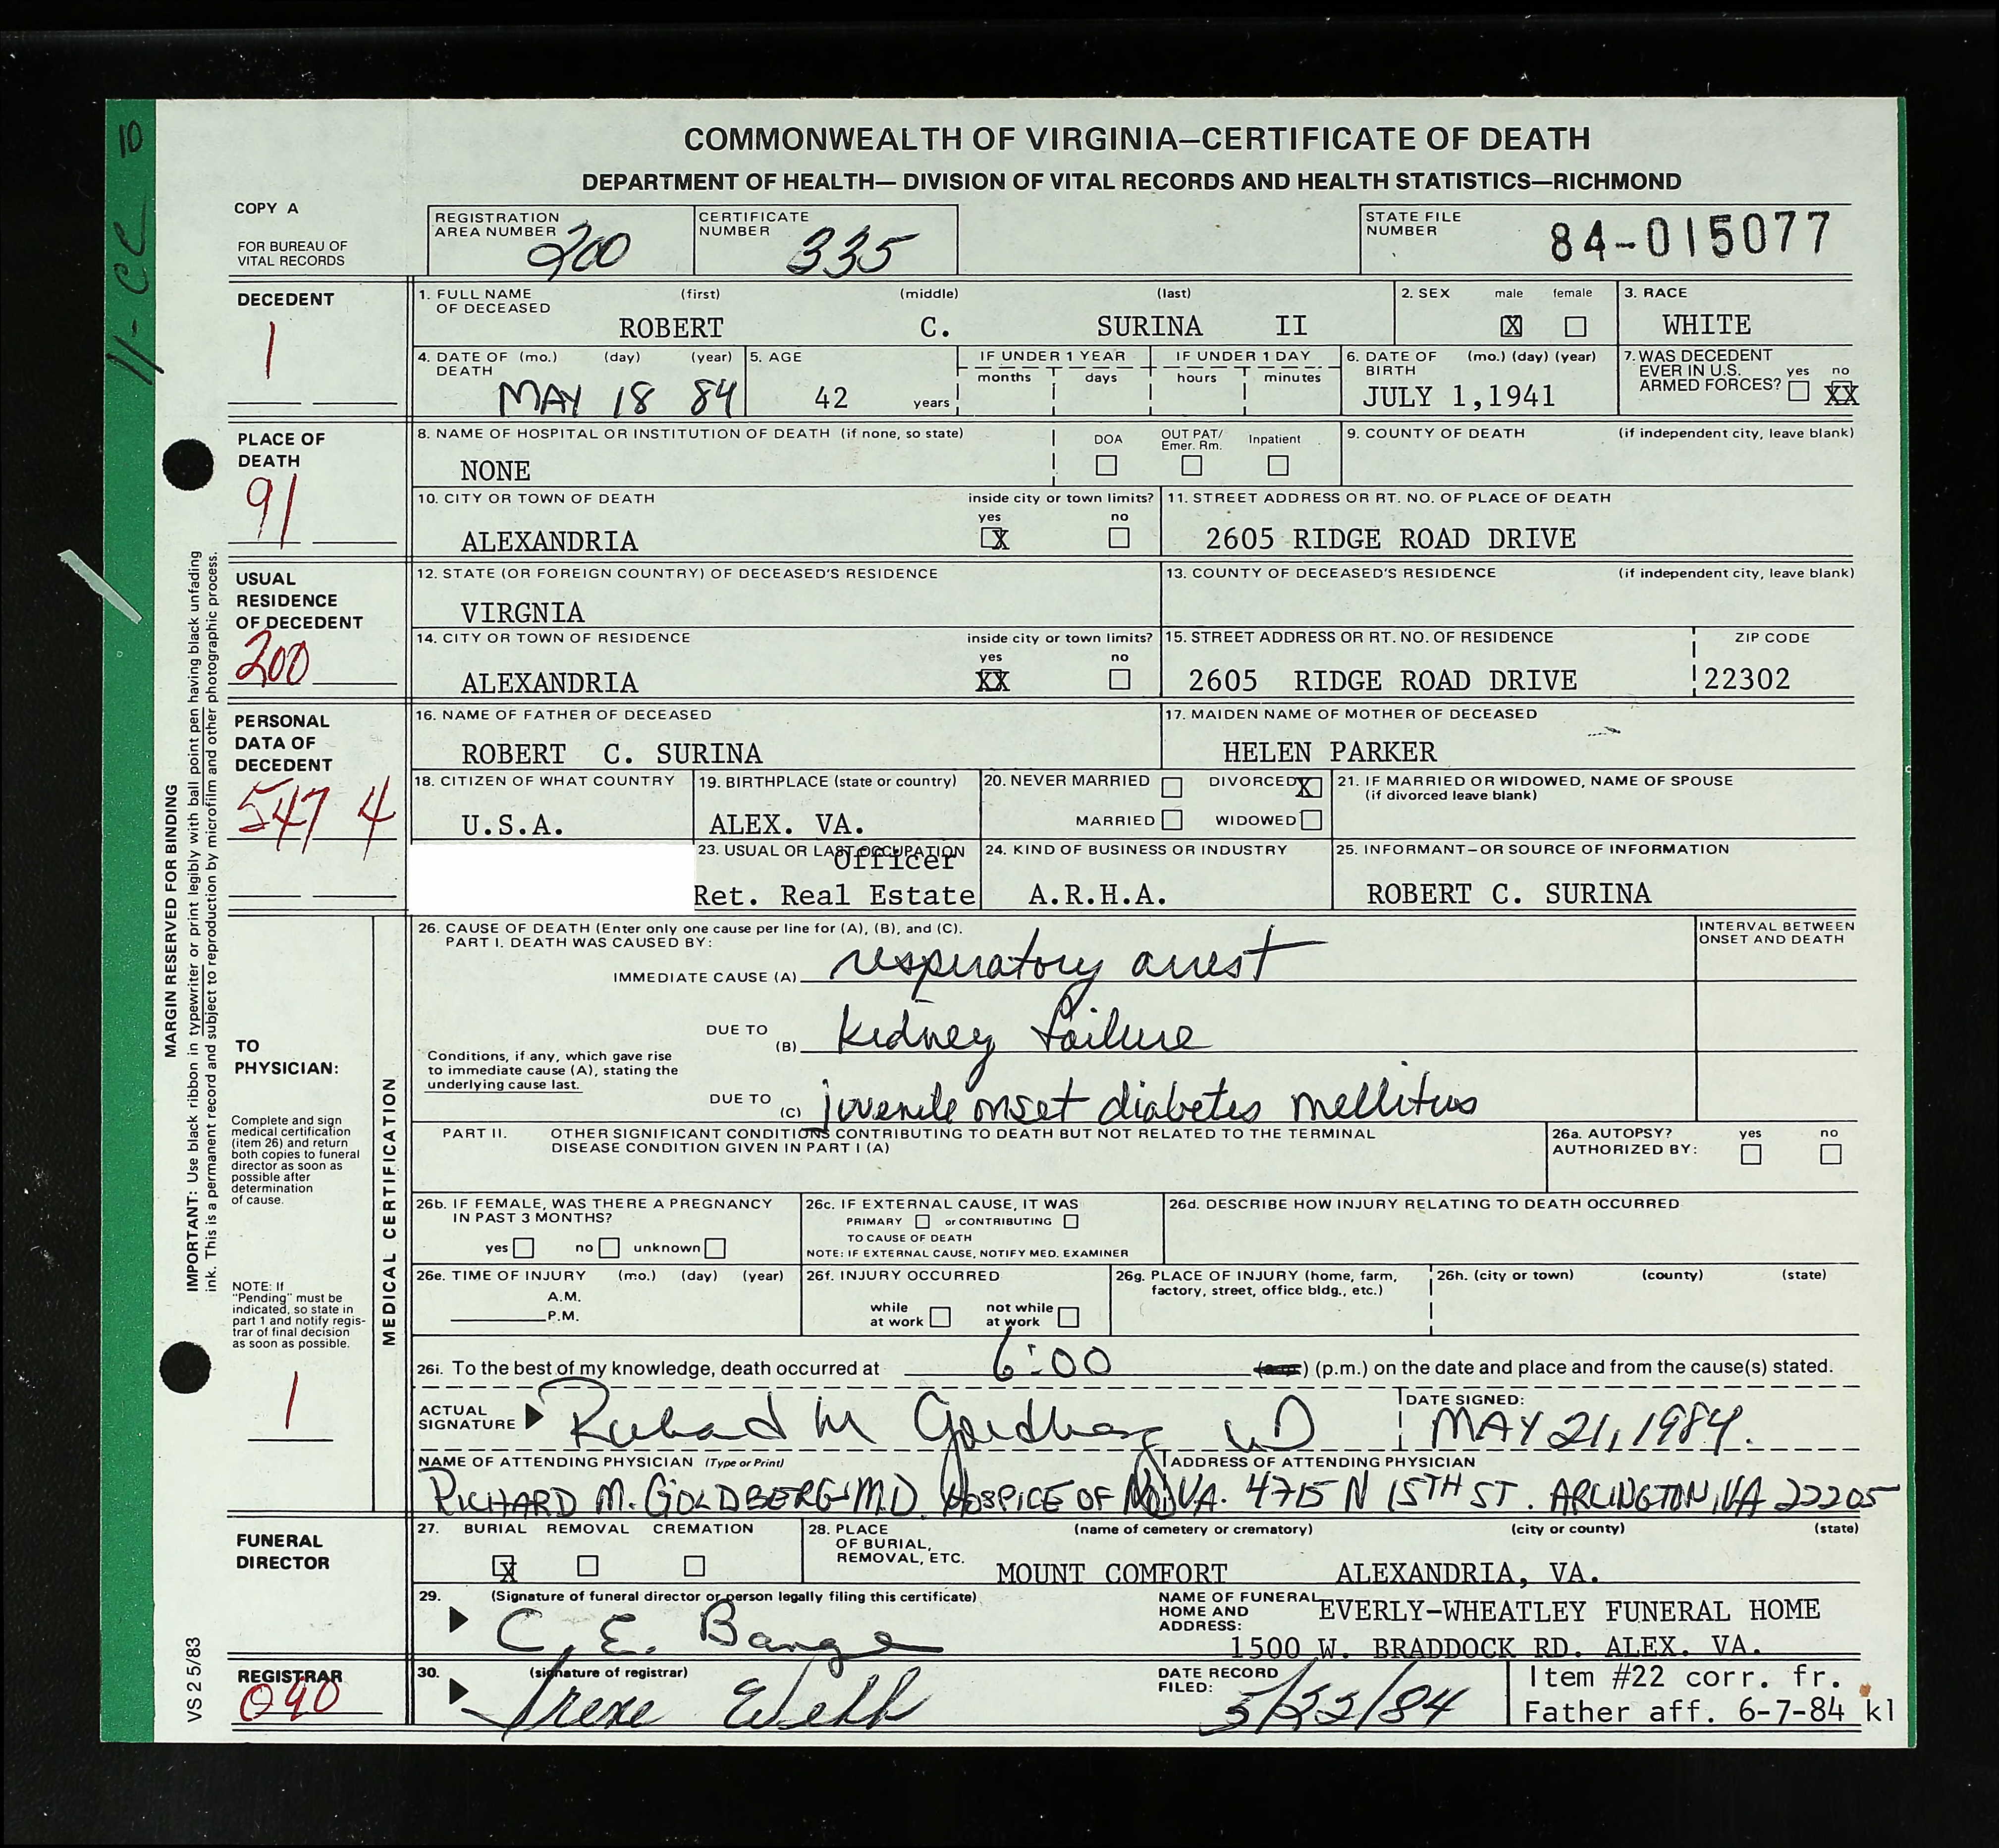 COMMONWEALTH OF VIRGINIA—CERTIFICATE OF DEATH
DEPARTMENT OF HEALTH— DIVISION OF VITAL RECORDS AND HEALTH STATISTICS—RICHMOND
10
11-CC
COPY A
FOR BUREAU OF
VITAL RECORDS
REGISTRATION
AREA NUMBER 200
CERTIFICATE
NUMBER 335
STATE FILE
NUMBER 84-015077
DECEDENT
1
1. FULL NAME (first) (middle) (last)
OF DECEASED
ROBERT C. SURINA II
2. SEX male female
X
3. RACE
WHITE
4. DATE OF (mo.) (day) (year)
DEATH
MAY 18 84
5. AGE
42 years
IF UNDER 1 YEAR
months days
IF UNDER 1 DAY
hours minutes
6. DATE OF (mo.) (day) (year)
BIRTH
JULY 1,1941
7. WAS DECEDENT
EVER IN U.S. yes no
ARMED FORCES? XX
PLACE OF
DEATH
91
8. NAME OF HOSPITAL OR INSTITUTION OF DEATH (if none, so state)
NONE
DOA OUT PAT/ Inpatient
Emer. Rm.
9. COUNTY OF DEATH (if independent city, leave blank)
10. CITY OR TOWN OF DEATH inside city or town limits?
yes no
ALEXANDRIA X
11. STREET ADDRESS OR RT. NO. OF PLACE OF DEATH
2605 RIDGE ROAD DRIVE
USUAL
RESIDENCE
OF DECEDENT
200
12. STATE (OR FOREIGN COUNTRY) OF DECEASED'S RESIDENCE
VIRGNIA
13. COUNTY OF DECEASED'S RESIDENCE (if independent city, leave blank)
14. CITY OR TOWN OF RESIDENCE inside city or town limits?
yes no
ALEXANDRIA XX
15. STREET ADDRESS OR RT. NO. OF RESIDENCE ZIP CODE
2605 RIDGE ROAD DRIVE 22302
PERSONAL
DATA OF
DECEDENT
547 4
16. NAME OF FATHER OF DECEASED
ROBERT C. SURINA
17. MAIDEN NAME OF MOTHER OF DECEASED
HELEN PARKER
18. CITIZEN OF WHAT COUNTRY
U.S.A.
19. BIRTHPLACE (state or country)
ALEX. VA.
20. NEVER MARRIED DIVORCED X
MARRIED WIDOWED
21. IF MARRIED OR WIDOWED, NAME OF SPOUSE
(if divorced leave blank)
23. USUAL OR LAST OCCUPATION
Officer
Ret. Real Estate
24. KIND OF BUSINESS OR INDUSTRY
A.R.H.A.
25. INFORMANT—OR SOURCE OF INFORMATION
ROBERT C. SURINA
MARGIN RESERVED FOR BINDING
IMPORTANT: Use black ribbon in typewriter or print legibly with ball point pen having black unfading
ink. This is a permanent record and subject to reproduction by microfilm and other photographic process.
TO
PHYSICIAN:
Complete and sign
medical certification
(item 26) and return
both copies to funeral
director as soon as
possible after
determination
of cause.
NOTE: If
"Pending" must be
indicated, so state in
part 1 and notify regis-
trar of final decision
as soon as possible.
1
MEDICAL CERTIFICATION
26. CAUSE OF DEATH (Enter only one cause per line for (A), (B), and (C).
PART I. DEATH WAS CAUSED BY:
INTERVAL BETWEEN
ONSET AND DEATH
IMMEDIATE CAUSE (A) respiratory arrest
DUE TO
(B) kidney failure
Conditions, if any, which gave rise
to immediate cause (A), stating the
underlying cause last.
DUE TO
(C) juvenile onset diabetes mellitus
PART II. OTHER SIGNIFICANT CONDITIONS CONTRIBUTING TO DEATH BUT NOT RELATED TO THE TERMINAL
DISEASE CONDITION GIVEN IN PART I (A)
26a. AUTOPSY? yes no
AUTHORIZED BY:
26b. IF FEMALE, WAS THERE A PREGNANCY
IN PAST 3 MONTHS?
yes no unknown
26c. IF EXTERNAL CAUSE, IT WAS
PRIMARY or CONTRIBUTING
TO CAUSE OF DEATH
NOTE: IF EXTERNAL CAUSE, NOTIFY MED. EXAMINER
26d. DESCRIBE HOW INJURY RELATING TO DEATH OCCURRED
26e. TIME OF INJURY (mo.) (day) (year)
A.M.
P.M.
26f. INJURY OCCURRED
while not while
at work at work
26g. PLACE OF INJURY (home, farm,
factory, street, office bldg., etc.)
26h. (city or town) (county) (state)
26i. To the best of my knowledge, death occurred at 6:00 (a.m.) (p.m.) on the date and place and from the cause(s) stated.
ACTUAL
SIGNATURE Richard M Goldberg MD
DATE SIGNED:
MAY 21, 1984.
NAME OF ATTENDING PHYSICIAN (Type or Print) ADDRESS OF ATTENDING PHYSICIAN
RICHARD M. GOLDBERG M.D. HOSPICE OF NO. VA. 4715 N 15TH ST. ARLINGTON, VA 22205
FUNERAL
DIRECTOR
27. BURIAL REMOVAL CREMATION
X
28. PLACE (name of cemetery or crematory) (city or county) (state)
OF BURIAL,
REMOVAL, ETC.
MOUNT COMFORT ALEXANDRIA, VA.
29. (Signature of funeral director or person legally filing this certificate)
C. E. Bange
NAME OF FUNERAL
HOME AND
ADDRESS:
EVERLY-WHEATLEY FUNERAL HOME
1500 W. BRADDOCK RD. ALEX. VA.
REGISTRAR
090
30. (signature of registrar)
Irene Webb
DATE RECORD
FILED:
5/22/84
Item #22 corr. fr.
Father aff. 6-7-84 kl
VS 2 5/83